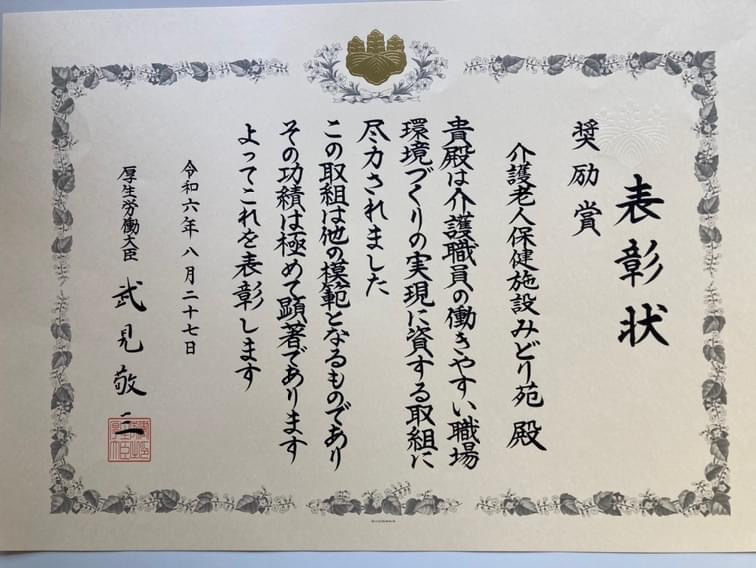 表彰状
奨励賞
介護老人保健施設みどり苑 殿
貴殿は介護職員の働きやすい職場
環境づくりの実現に資する取組に
尽力されました
この取組は他の模範となるものであり
その功績は極めて顕著であります
よってこれを表彰します
令和六年八月二十七日
厚生労働大臣 武見敬三